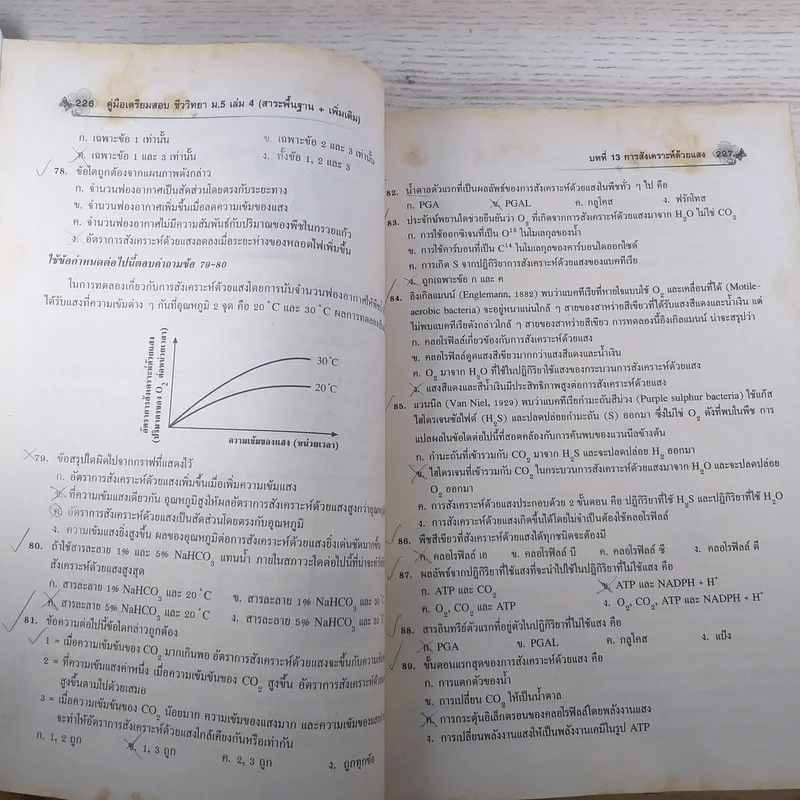 226 คู่มือเตรียมสอบ ชีววิทยา ม.5 เล่ม 4 (สาระพื้นฐาน + เพิ่มเติม)
ก. เฉพาะข้อ 1 เท่านั้น ข. เฉพาะข้อ 2 และ 3 เท่านั้น
ค. เฉพาะข้อ 1 และ 3 เท่านั้น ง. ทั้งข้อ 1, 2 และ 3
78. ข้อใดถูกต้องจากแผนภาพดังกล่าว
ก. จำนวนฟองอากาศเป็นสัดส่วนโดยตรงกับระยะทาง
ข. จำนวนฟองอากาศเพิ่มขึ้นเมื่อลดความเข้มของแสง
ค. จำนวนฟองอากาศไม่มีความสัมพันธ์กับปริมาณของพืชในกรวยแก้ว
ง. อัตราการสังเคราะห์ด้วยแสงลดลงเมื่อระยะห่างของหลอดไฟเพิ่มขึ้น
ใช้ข้อกำหนดต่อไปนี้ตอบคำถามข้อ 79-80
ในการทดลองเกี่ยวกับการสังเคราะห์ด้วยแสงโดยการนับจำนวนฟองอากาศ
ได้รับแสงที่ความเข้มต่าง ๆ กันที่อุณหภูมิ 2 จุด คือ 20 ˚C และ 30 ˚C ผลการทดลอง
อัตราการสังเคราะห์ด้วยแสง
(ปริมาตรของ O2 ต่อหน่วยเวลา)
30 ˚C
20 ˚C
ความเข้มของแสง (หน่วยเวลา)
79. ข้อสรุปใดผิดไปจากกราฟที่แสดงไว้
ก. อัตราการสังเคราะห์ด้วยแสงเพิ่มขึ้นเมื่อเพิ่มความเข้มแสง
ข. ที่ความเข้มแสงเดียวกัน อุณหภูมิสูงให้ผลอัตราการสังเคราะห์ด้วยแสงสูงกว่า
ค. อัตราการสังเคราะห์ด้วยแสงเป็นสัดส่วนโดยตรงกับอุณหภูมิ
ง. ความเข้มแสงยิ่งสูงขึ้น ผลของอุณหภูมิต่อการสังเคราะห์ด้วยแสงยิ่งเด่นชัดมากขึ้น
80. ถ้าใช้สารละลาย 1% และ 5% NaHCO3 แทนน้ำ ภายในสภาวะใดต่อไปนี้ที่น่าจะ
สังเคราะห์ด้วยแสงสูงสุด
ก. สารละลาย 1% NaHCO3 และ 20 ˚C ข. สารละลาย 1% NaHCO3 และ 30 ˚C
ค. สารละลาย 5% NaHCO3 และ 20 ˚C ง. สารละลาย 5% NaHCO3 และ 30 ˚C
81. ข้อความต่อไปนี้ข้อใดกล่าวถูกต้อง
1 = เมื่อความเข้มข้นของ CO2 มากเกินพอ อัตราการสังเคราะห์ด้วยแสงจะขึ้นกับ
2 = ที่ความเข้มแสงค่าหนึ่ง เมื่อความเข้มข้นของ CO2 สูงขึ้น อัตราการสังเคราะห์ด้วยแสง
สูงขึ้นตามไปด้วยเสมอ
3 = เมื่อความเข้มข้นของ CO2 น้อยมาก ความเข้มของแสงมาก และความเข้มของแสง
จะทำให้อัตราการสังเคราะห์ด้วยแสงใกล้เคียงกันหรือเท่ากัน
ก. 1, 2 ถูก ข. 1, 3 ถูก ค. 2, 3 ถูก ง. ถูกทุกข้อ
บทที่ 13 การสังเคราะห์ด้วยแสง 227
82. น้ำตาลตัวแรกที่เป็นผลลัพธ์ของการสังเคราะห์ด้วยแสงในพืชทั่ว ๆ ไป คือ
ก. PGA ข. PGAL ค. กลูโคส ง. ฟรักโทส
83. ประจักษ์พยานใดช่วยยืนยันว่า O2 ที่เกิดจากการสังเคราะห์ด้วยแสงมาจาก H2O ไม่ใช่ CO2
ก. การใช้ออกซิเจนที่เป็น O18 ในโมเลกุลของน้ำ
ข. การใช้คาร์บอนที่เป็น C14 ในโมเลกุลของคาร์บอนไดออกไซด์
ค. การเกิด S จากปฏิกิริยาการสังเคราะห์ด้วยแสงของแบคทีเรีย
ง. ถูกเฉพาะข้อ ก และ ค
84. อิงเกิลแมนน์ (Englemann, 1882) พบว่าแบคทีเรียที่หายใจแบบใช้ O2 และเคลื่อนที่ได้ (Motile-
aerobic bacteria) จะอยู่หนาแน่นใกล้ ๆ สายของสาหร่ายสีเขียวที่ได้รับแสงสีแดงและน้ำเงิน แต่
ไม่พบแบคทีเรียดังกล่าวใกล้ ๆ สายของสาหร่ายสีเขียว การทดลองนี้อิงเกิลแมนน์ น่าจะสรุปว่า
ก. คลอโรฟิลล์เกี่ยวข้องกับการสังเคราะห์ด้วยแสง
ข. คลอโรฟิลล์ดูดแสงสีเขียวมากกว่าแสงสีแดงและน้ำเงิน
ค. O2 มาจาก H2O ที่ใช้ในปฏิกิริยาใช้แสงของกระบวนการสังเคราะห์ด้วยแสง
ง. แสงสีแดงและสีน้ำเงินมีประสิทธิภาพสูงต่อการสังเคราะห์ด้วยแสง
85. แวนนีล (Van Niel, 1929) พบว่าแบคทีเรียกำมะถันสีม่วง (Purple sulphur bacteria) ใช้แก๊ส
ไฮโดรเจนซัลไฟด์ (H2S) และปลดปล่อยกำมะถัน (S) ออกมา ซึ่งไม่ใช่ O2 ดังที่พบในพืช การ
แปลผลในข้อใดต่อไปนี้ที่สอดคล้องกับการค้นพบของแวนนีลข้างต้น
ก. กำมะถันที่เข้ารวมกับ CO2 มาจาก H2S และจะปลดปล่อย H2 ออกมา
ข. ไฮโดรเจนที่เข้ารวมกับ CO2 ในกระบวนการสังเคราะห์ด้วยแสงมาจาก H2O และจะปลดปล่อย
O2 ออกมา
ค. การสังเคราะห์ด้วยแสงประกอบด้วย 2 ขั้นตอน คือ ปฏิกิริยาที่ใช้ H2S และปฏิกิริยาที่ใช้ H2O
ง. การสังเคราะห์ด้วยแสงเกิดขึ้นได้โดยไม่จำเป็นต้องใช้คลอโรฟิลล์
86. พืชสีเขียวที่สังเคราะห์ด้วยแสงได้ทุกชนิดจะต้องมี
ก. คลอโรฟิลล์ เอ ข. คลอโรฟิลล์ บี ค. คลอโรฟิลล์ ซี ง. คลอโรฟิลล์ ดี
87. ผลลัพธ์จากปฏิกิริยาที่ใช้แสงที่จะนำไปใช้ในปฏิกิริยาที่ไม่ใช้แสง คือ
ก. ATP และ CO2 ข. ATP และ NADPH + H+
ค. O2, CO2 และ ATP ง. O2, CO2, ATP และ NADPH + H+
88. สารอินทรีย์ตัวแรกที่อยู่ตัวในปฏิกิริยาที่ไม่ใช้แสง คือ
ก. PGA ข. PGAL ค. กลูโคส ง. แป้ง
89. ขั้นตอนแรกสุดของการสังเคราะห์ด้วยแสง คือ
ก. การแตกตัวของน้ำ
ข. การเปลี่ยน CO2 ให้เป็นน้ำตาล
ค. การกระตุ้นอิเล็กตรอนของคลอโรฟิลล์โดยพลังงานแสง
ง. การเปลี่ยนพลังงานแสงให้เป็นพลังงานเคมีในรูป ATP